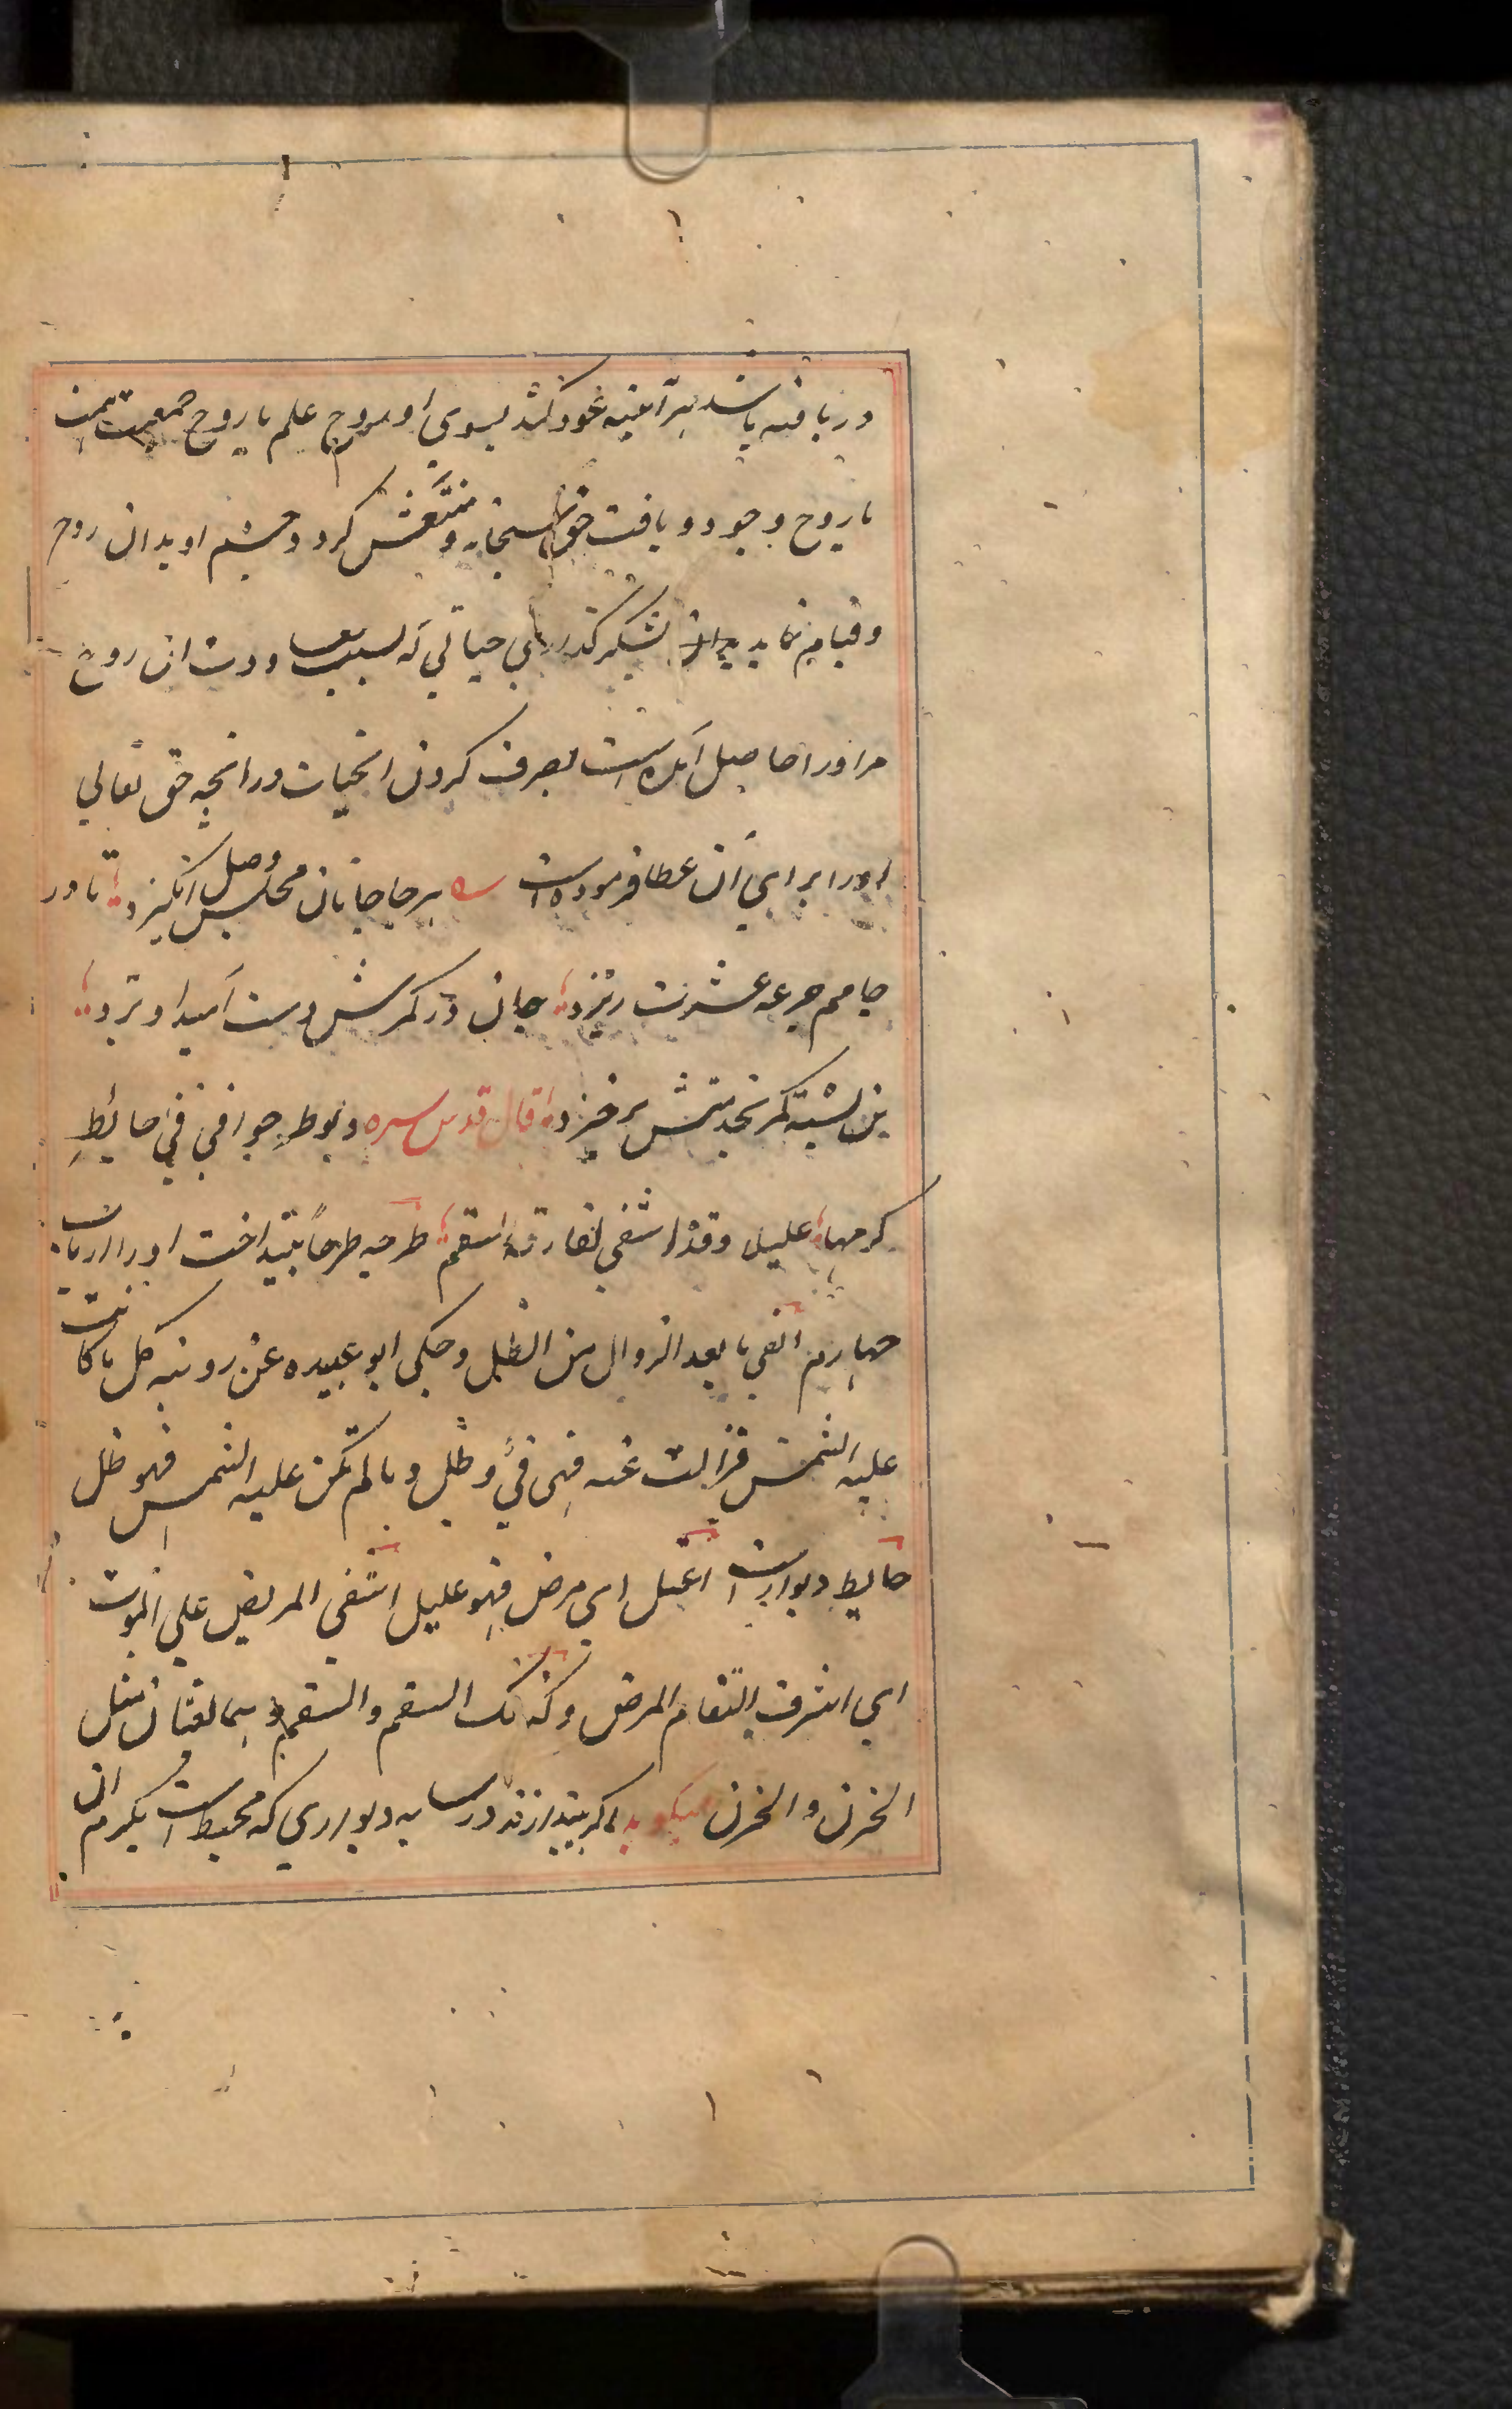 دریافته باشد هر آینه عود کند بسوی او روح علم یا روح جمعیت همت
یا روح وجود و یافت حق سبحانه و منتعش کرد و جسم او بدان روح
و قیام نماید بشکر گذاری حیاتی که بسبب معاودت آن روح
مر او را حاصل آمده است بصرف کردن آن حیات در آنچه حق تعالی
او را برای آن عطا فرموده است ه هر جا جانان مجلس وصل انگیزد تا در
جامم جرعه عشرت ریزد جان در کمرش دست امید آویزد
تن بسته کمر بخدمتش برخیزد قال قدس سره ولو طرحوا فی فیء حایط
کرمها علیلا وقد اشفی لفارقه السقم طرحه طرحاً بینداخت او را از باب
چهارم الفیء ما بعد الزوال من الظل وحکی ابو عبیده عن روبه کل ما کانت
علیه الشمس فزالت عنه فهی فیء و ظل وما لم تکن علیه الشمس فهو ظل
حایط دیوار است اعتل ای مرض فهو علیل اشفی المریض علی الموت
ای اشرف السقام المرض وکذلک السقم والسقم وهما لغتان مثل
الحزن والحزن میکوید اگر بیندازند در سایه دیواری که محیط است بکرم آن